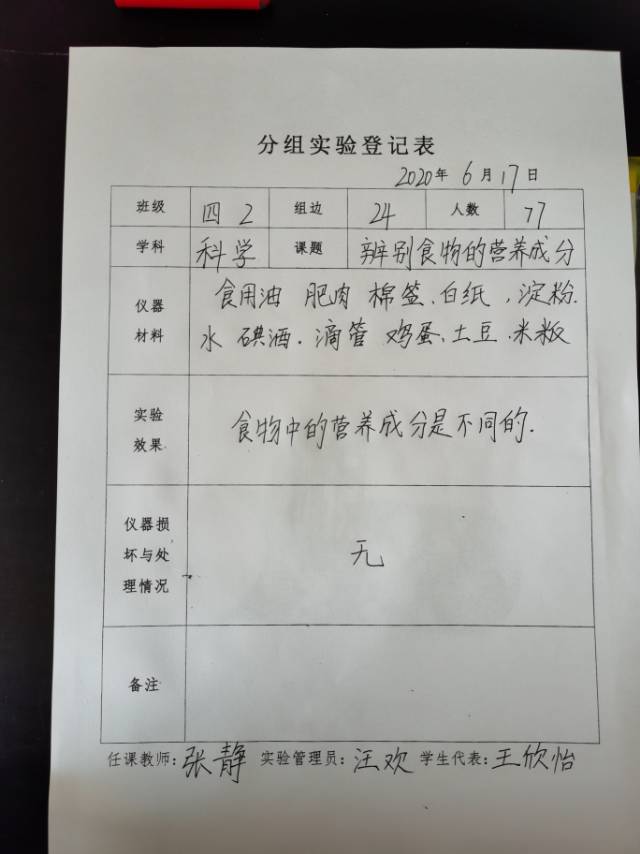 分组实验登记表
2020年 6月17日
班级 四 2 组边 24 人数 77
学科 科学 课题 辨别食物的营养成分
仪器 食用油 肥肉 棉签、白纸,淀粉.
材料 水 碘酒.滴管 鸡蛋、土豆.米粄
实验
效果 食物中的营养成分是不同的.
仪器损
坏与处 无
理情况
备注
任课教师:张静 实验管理员:汪欢 学生代表:王欣怡